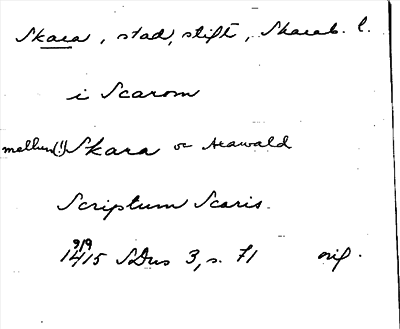 Skara, stad, stift, Skarab. l.
i Scarom
mellum(!) Skara oc Axawald
Scriptum Scaris.
9/9
1415 SDns 3, s. 71 orig.